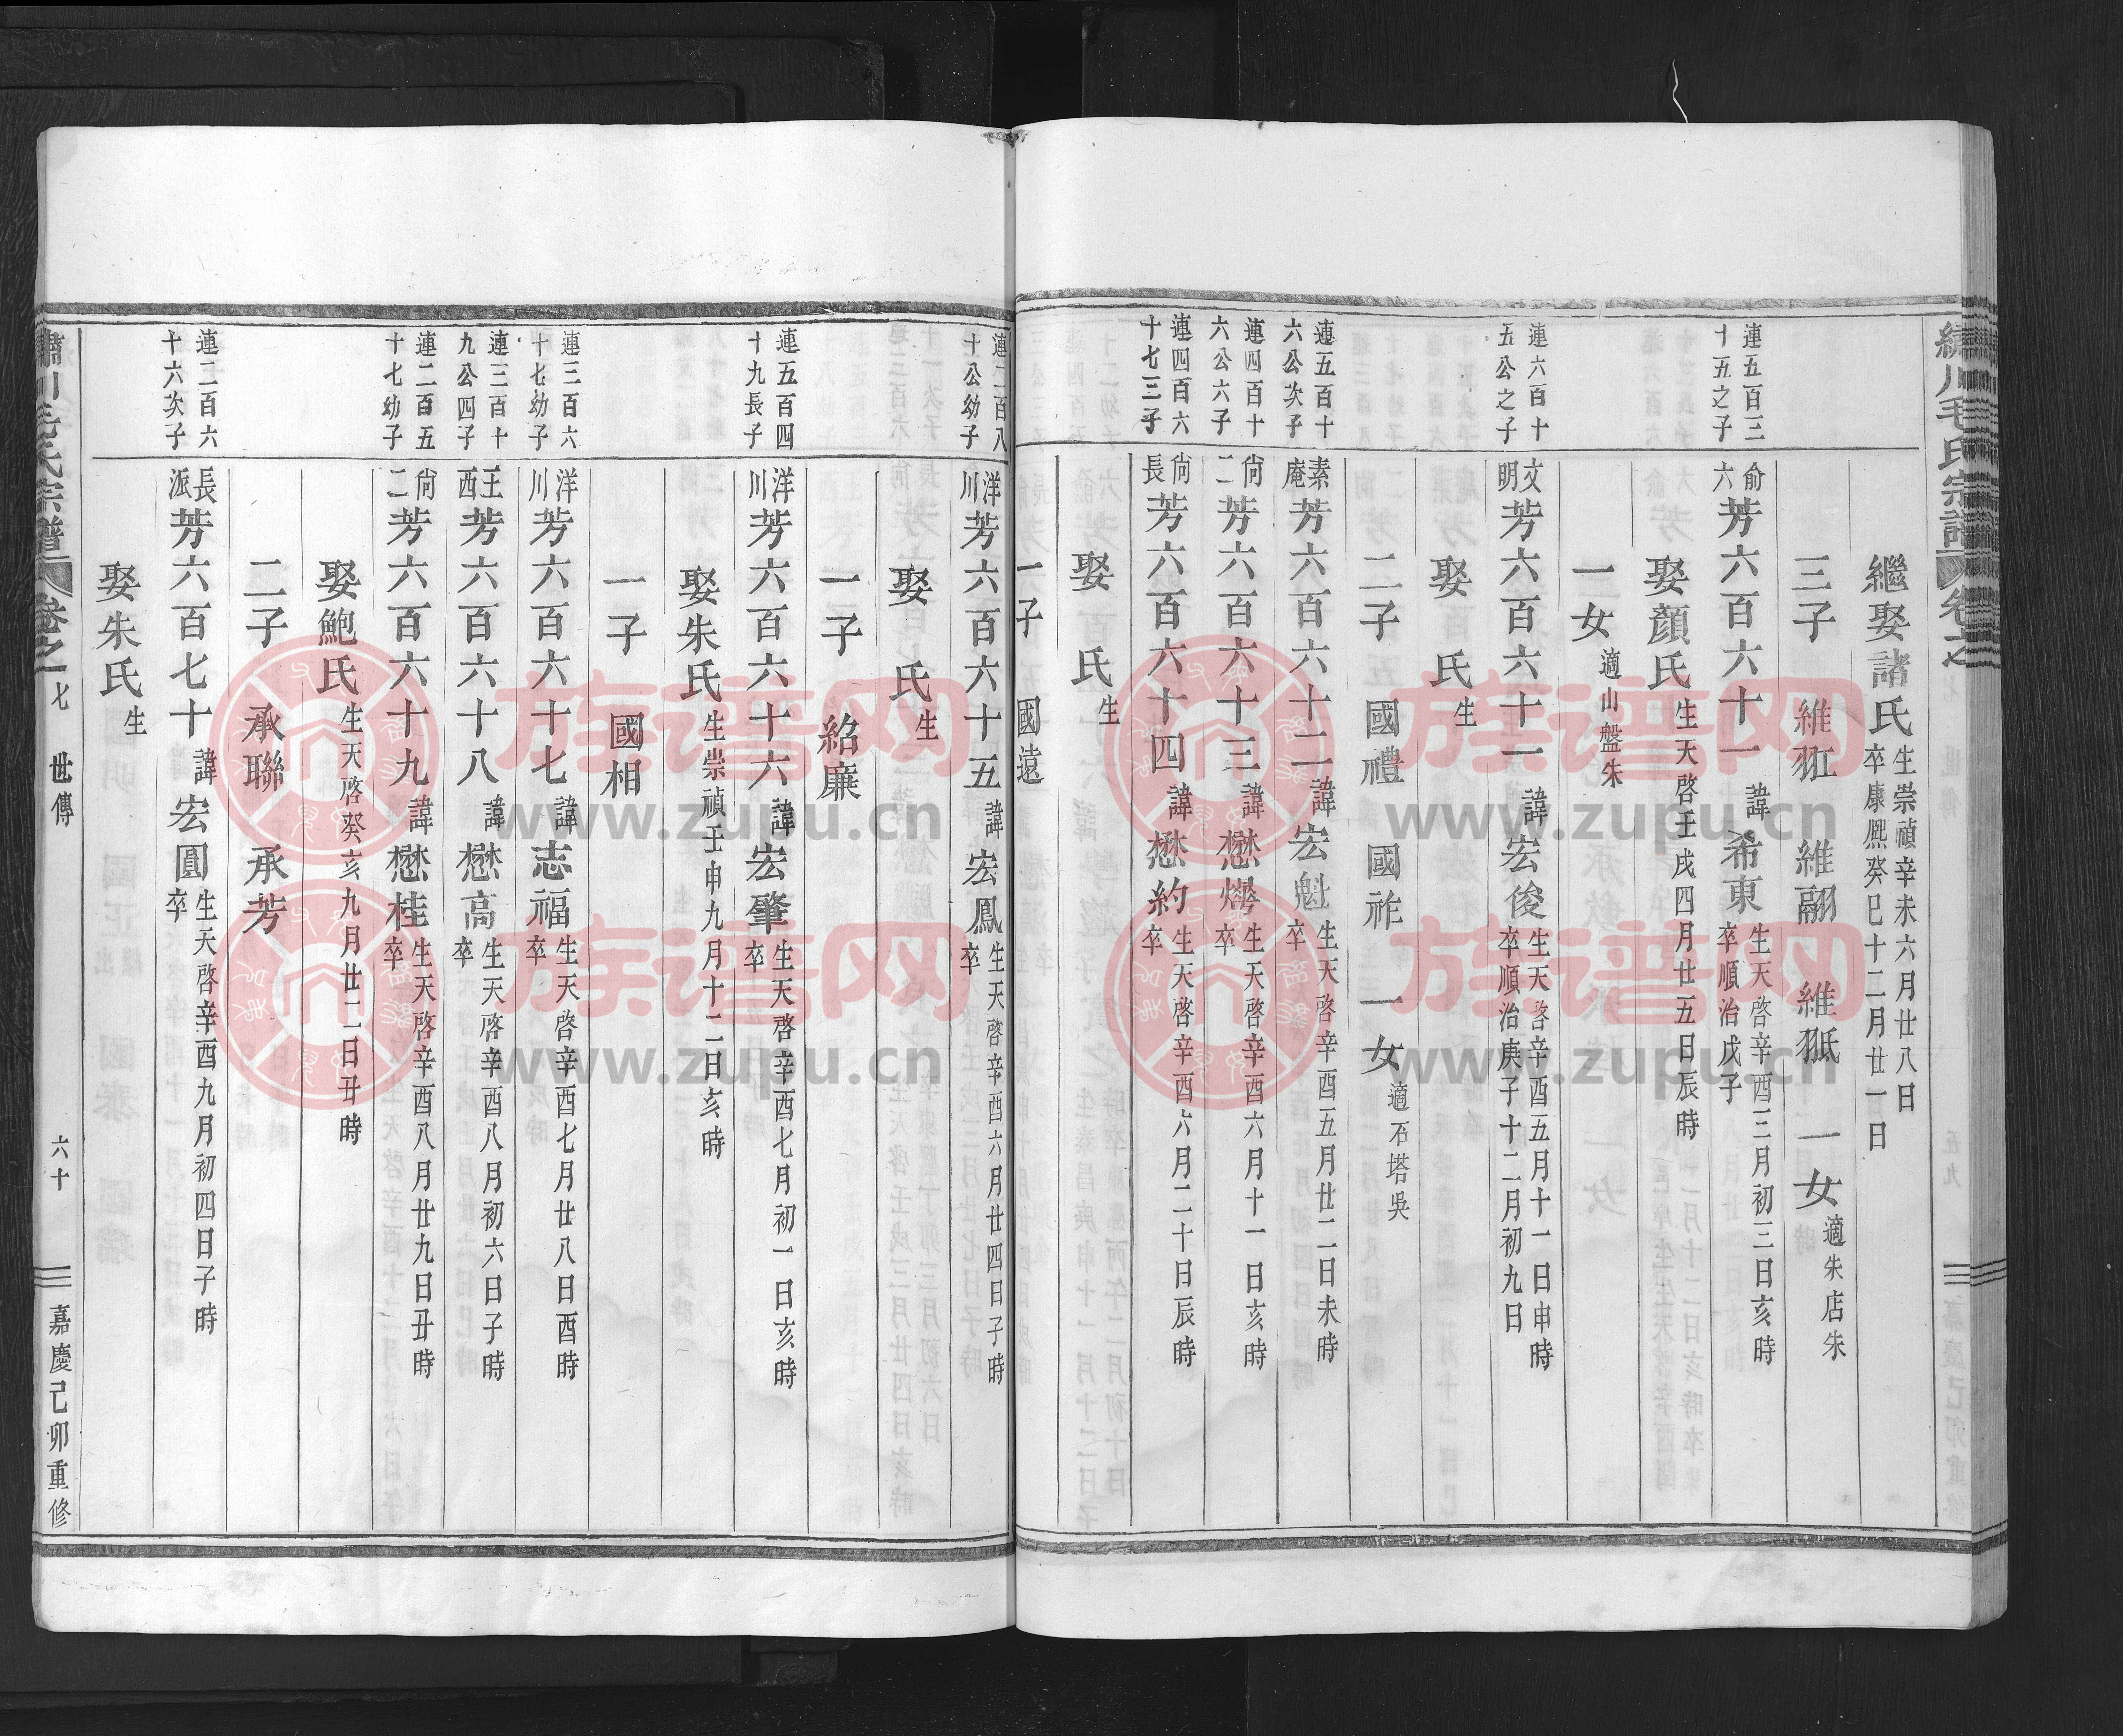 繡川毛氏宗譜 卷之
繼娶諸氏 生崇禎辛未六月廿八日 卒康熙癸巳十二月廿一日
三子 維𦐇 維翮 維 一女 適朱店朱
連五百三十五之子 俞六 芳六百六十一 諱希東 生天啓辛酉三月初三日亥時 卒順治戊子
娶顏氏 生天啓壬戌四月廿五日辰時
一女 適山盤朱
連六百十五公之子 文明 芳六百六十一 諱宏俊 生天啓辛酉五月十一日申時 卒順治庚子十二月初九日
娶 氏 生
二子 國禮 國祚 一女 適石塔吳
連五百十六公次子 素庵 芳六百六十二 諱宏魁 生天啓辛酉五月廿二日未時 卒
連四百十六公六子 尙二 芳六百六十三 諱懋 生天啓辛酉六月十一日亥時 卒
連四百六十七三子 尙長 芳六百六十四 諱懋約 生天啓辛酉六月二十日辰時 卒
娶 氏 生
一子 國遠
連二百八十公幼子 洋川 芳六百六十五 諱宏鳳 生天啓辛酉六月廿四日子時 卒
娶 氏 生
一子 紹廉
連五百四十九長子 洋川 芳六百六十六 諱宏肇 生天啓辛酉七月初一日亥時 卒
娶朱氏 生崇禎壬申九月十二日亥時
一子 國相
連三百六十七幼子 洋川 芳六百六十七 諱志福 生天啓辛酉七月廿八日酉時 卒
連三百十九公四子 王西 芳六百六十八 諱懋高 生天啓辛酉八月初六日子時 卒
連二百五十七幼子 尙二 芳六百六十九 諱懋桂 生天啓辛酉八月廿九日丑時 卒
娶鮑氏 生天啓癸亥九月廿二日丑時
二子 承聯 承芳
連二百六十六次子 長派 芳六百七十 諱宏圓 生天啓辛酉九月初四日子時 卒
娶朱氏 生
繡川毛氏宗譜 卷之一七 世傳 六十 嘉慶己卯重修
族谱网
www.zupu.cn
族谱网
www.zupu.cn
族谱网
www.zupu.cn
族谱网
www.zupu.cn